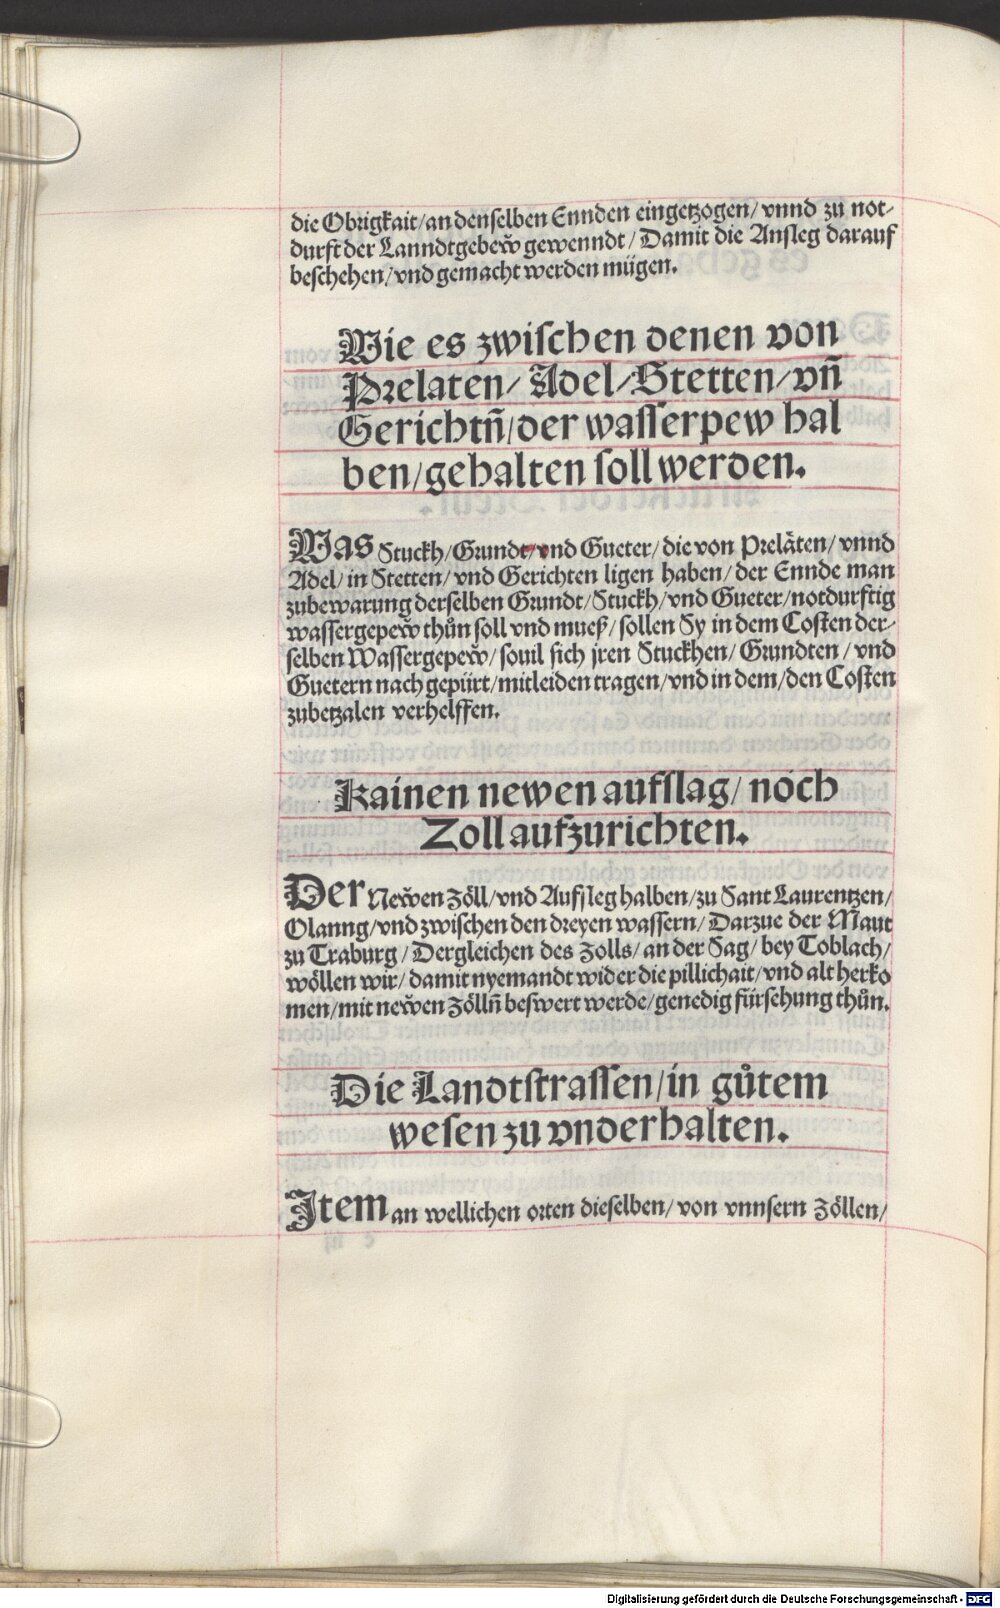 die Obrigkait/ an denselben Ennden eingetzogen/ vnnd zu not-
durfft der Lanndtgebew̆ gewenndt/ Damit die Ansleg darauf
beschehen/ vnd gemacht werden mügen.
Wie es zwischen denen von
Prelaten/ Adel/ Stetten/ vn̄
Gerichtn̄/ der wasserpew hal
ben/ gehalten soll werden.
Was Stuckh/ Grundt/ vnd Gueter/ die von Preläten/ vnnd
Adel/ in Stetten/ vnd Gerichten ligen haben/ der Ennde man
zubewarung derselben Grundt/ Stuckh/ vnd Gueter/ notdurftig
wassergepew̆ thůn soll vnd mueß/ sollen Sy in dem Costen der-
selben Wassergepew̆/ souil sich jren Stuckhen/ Grundten/ vnd
Guetern nach gepürt/ mitleiden tragen/ vnd in dem/ den Costen
zubetzalen verhelffen.
Kainen newen aufslag/ noch
Zoll aufzurichten.
Der New̆en Zöll/ vnd Aufsleg halben/ zu Sant Laurentzen/
Olanng/ vnd zwischen den dreyen wassern/ Darzue der Maut
zu Traburg/ Dergleichen des Zolls/ an der Sag/ bey Toblach/
wöllen wir/ damit nyemandt wider die pillichait/ vnd alt herko
men/ mit new̆en Zölln̄ beswert werde/ genedig fürsehung thůn.
Die Landtstrassen/ in gůtem
wesen zu vnderhalten.
Item an wellichen orten dieselben/ von vnnsern Zöllen/
Digitalisierung gefördert durch die Deutsche Forschungsgemeinschaft - DFG